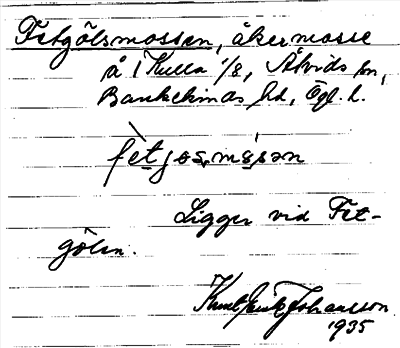 Fetgölsmossen, åkermosse
å 1 Kulla 1/8, Åtvids sn,
Bankekinds hd, Ögl. l.
Ligger vid Fet-
gölen.
Knut Erik Johansson
1935